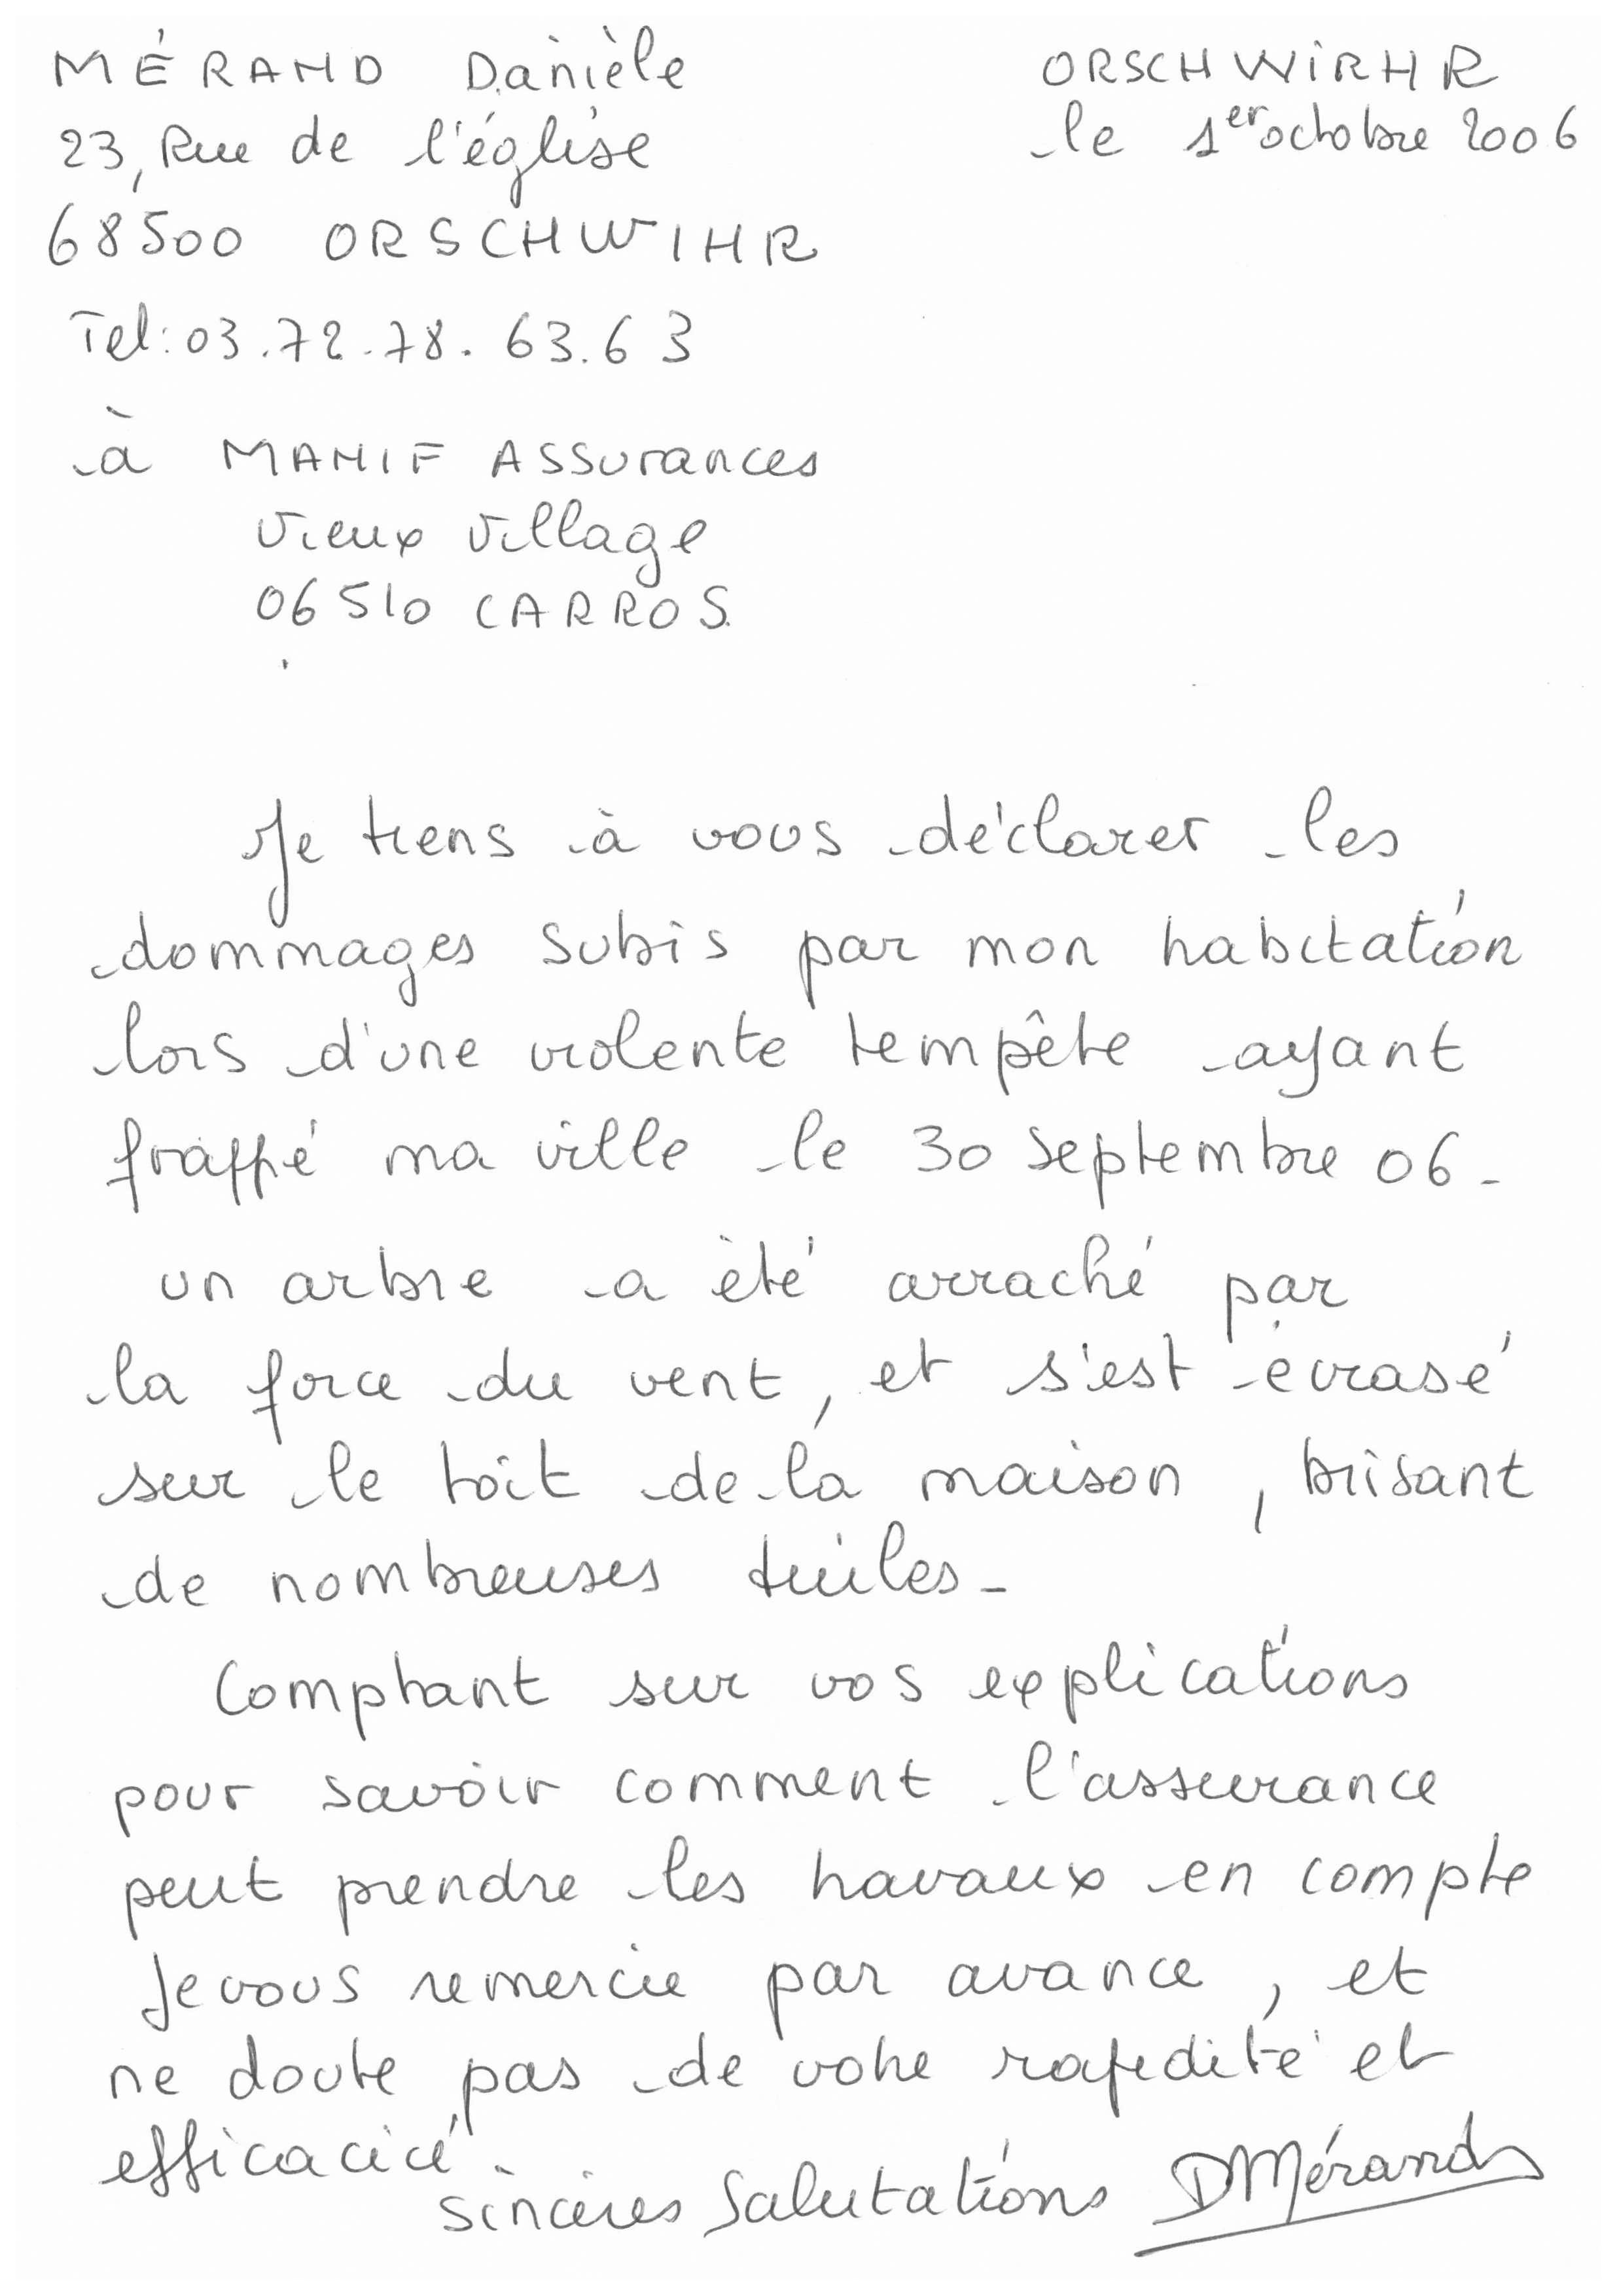 MÉRAND Danièle
ORSCHWIRHR
23, Rue de l'église
le 1er octobre 2006
68500 ORSCHWIHR
Tel: 03.72.78.63.63
à MANIF Assurances
Vieux Village
06510 CARROS.
Je tiens à vous déclarer les
dommages subis par mon habitation
lors d'une violente tempête ayant
frappé ma ville le 30 septembre 06-
un arbre a été arraché par
la force du vent, et s'est écrasé
sur le toit de la maison, brisant
de nombreuses tuiles-
Comptant sur vos explications
pour savoir comment l'assurance
peut prendre les travaux en compte
Je vous remercie par avance, et
ne doute pas de votre rapidité et
efficacicé.
Sincères Salutations DMérand